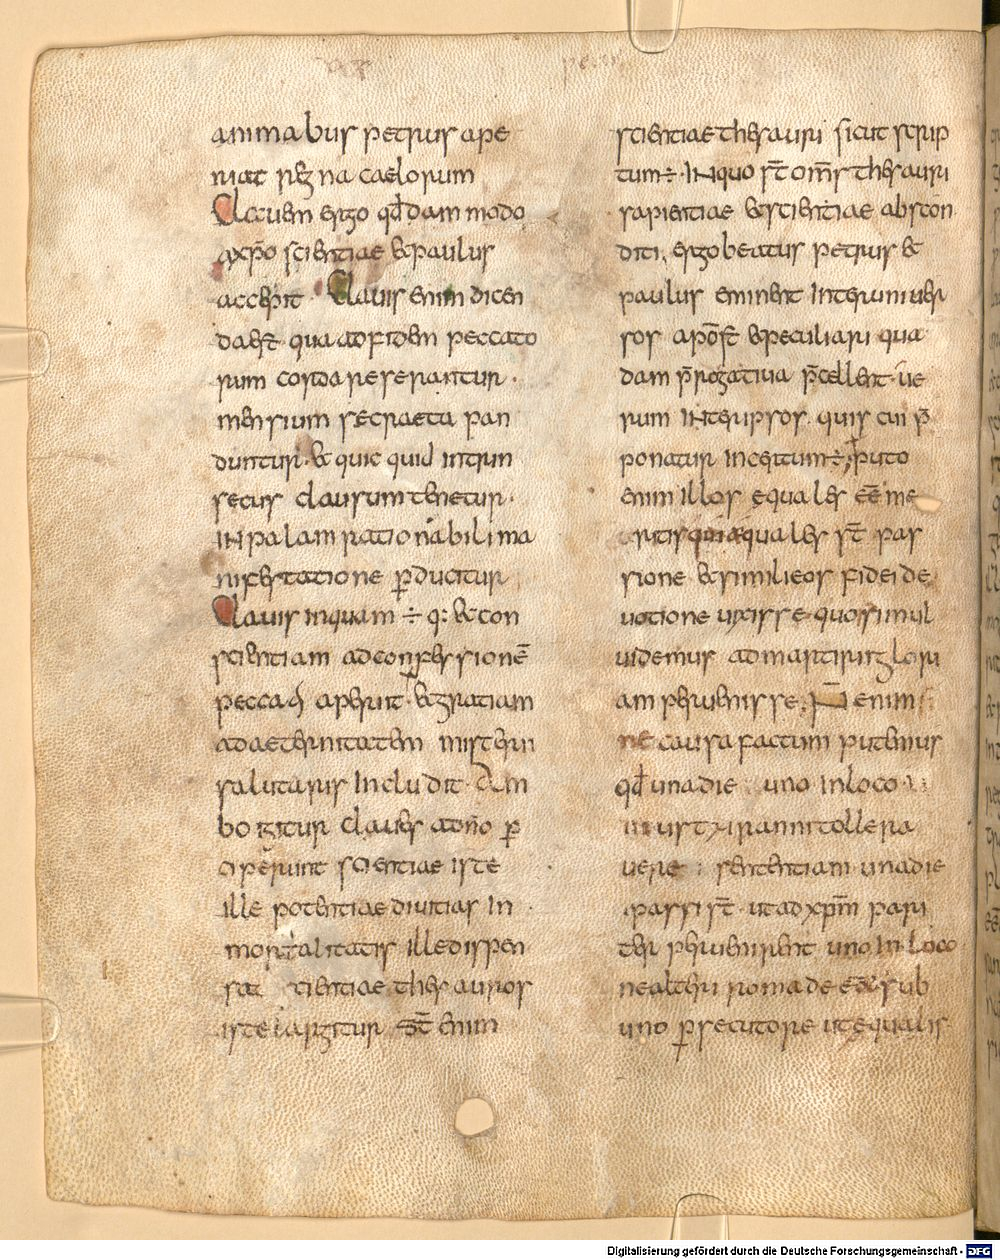 animabus petrus ape
riat regna caelorum
Clauem ergo qđdam modo
axp̄o scientiae &paulus
accepit · Clauis enim dicen
daest qua adfidem peccato
rum corda reserantur ·
mensium secraeta pan
duntur · & quic quid intrin
secus clausum tenetur ·
INpalam rationabili ma
nifestatione ꝑducitur
Clauis inquam ÷ q: &con
scientiam adconfessionē
peccati aperit · &gratiam
adaeternitatem misterii
salutaris includit · Am
bo igitur claues adn̄o ꝑ
ciperunt scientiae iste
ille potentiae diuitias in
mortalitatis ille dispen
sat tientiae thesauros
iste largitur s̄t enim
scientiae thesauri sicut scrip
tum ÷ · INquo s̄t om̄s thesauri
sapientiae &scientiae abscon
diti, ergo beatus petrus &
paulus eminent inter uniuer
sos apōst &peculiari qua
dam p̄rogatiua p̄cellent · ue
rum INter ipsos · quis cui p̄
ponatur incertum ÷, puto
enim illos equales eē me
ritis quia equales s̄t pas
sione &simili eos fidei de
uotione uixisse · quos simul
uidemus admartirii glori
am peruenisse, N̄ enim
ne causa factum putemus
qđ unadie uno inloco
tiranni tollera
uere sententiam unadie
passi s̄t · ut adxp̄m pari
ter peruenirent uno in loco
ne alteri roma deeēt · sub
uno ꝑsecutore ut equalis